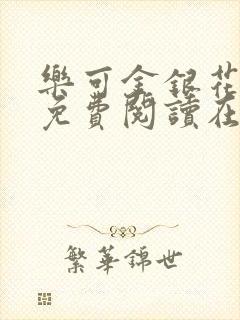 樂可金銀花
免費閱讀在
繁華錦世